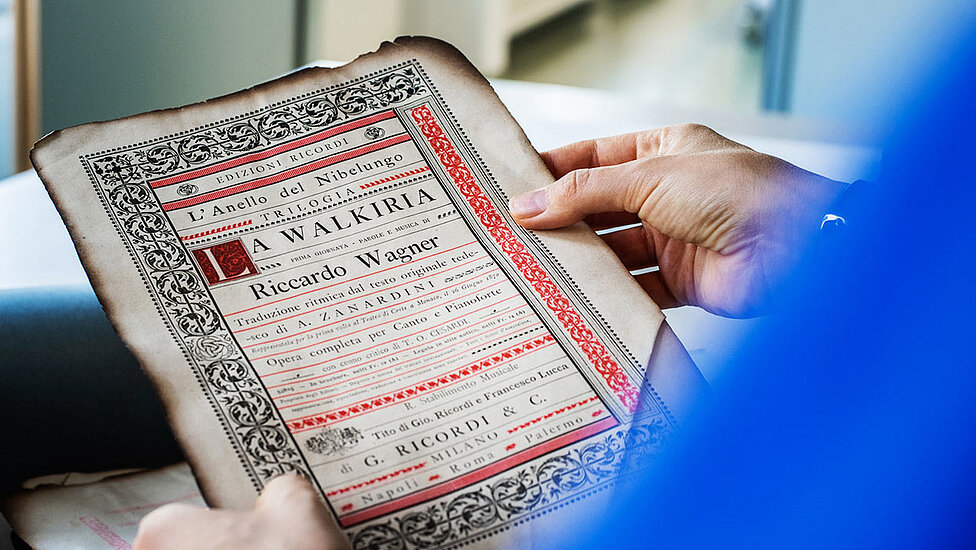 EDIZIONI RICORDI
L'Anello del Nibelungo
TRILOGIA
LA WALKIRIA
PRIMA GIORNATA - PAROLE E MUSICA DI
Riccardo Wagner
Traduzione ritmica dal testo originale tede-
-sco di A. ZANARDINI
Rappresentata per la prima volta al Teatro di Corte a Monaco, il 26 Giugno 1870
Opera completa per Canto e Pianoforte
con cenno critico di T. O. CESARDI
In brochure, netti Fr. (A) - Legata in stile antico, netti Fr. (A)
R. Stabilimento Musicale
Tito di Gio. Ricordi e Francesco Lucca
di G. RICORDI & C.
MILANO
Napoli Roma Palermo